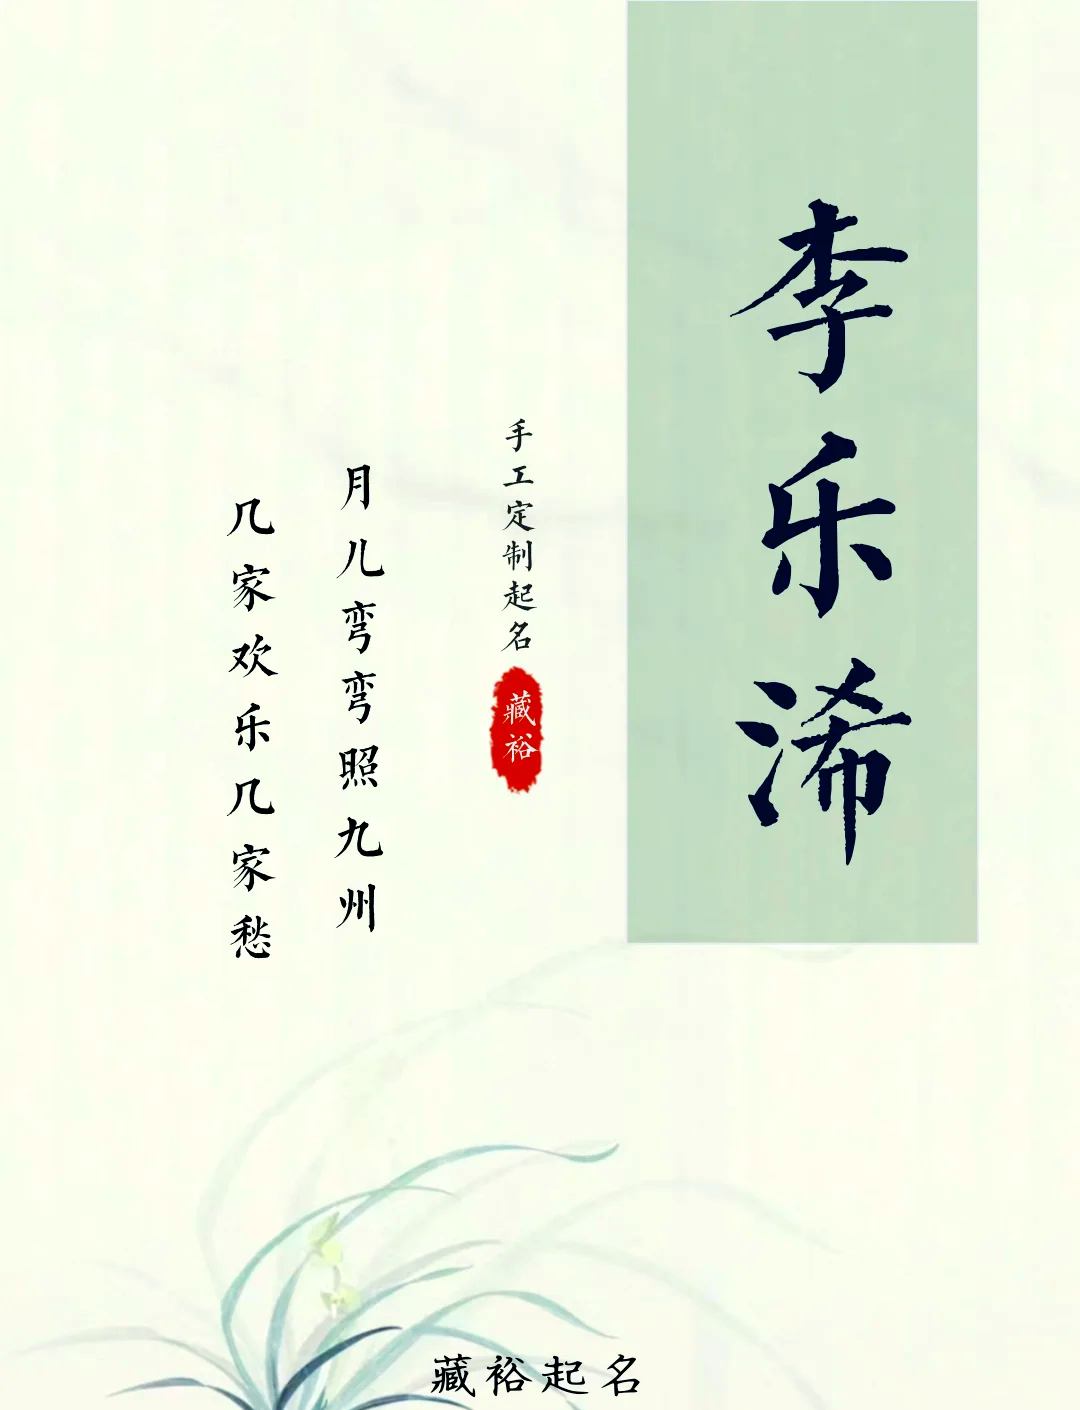 李乐浠
手工定制起名
藏裕
月儿弯弯照九州
几家欢乐几家愁
藏裕起名